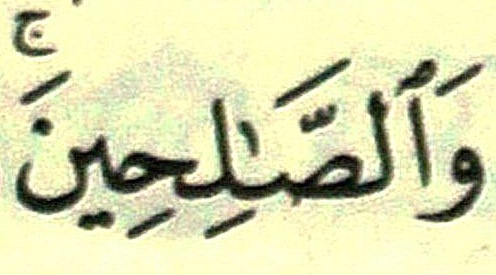 وَٱلصَّـٰلِحِينَ ۚ